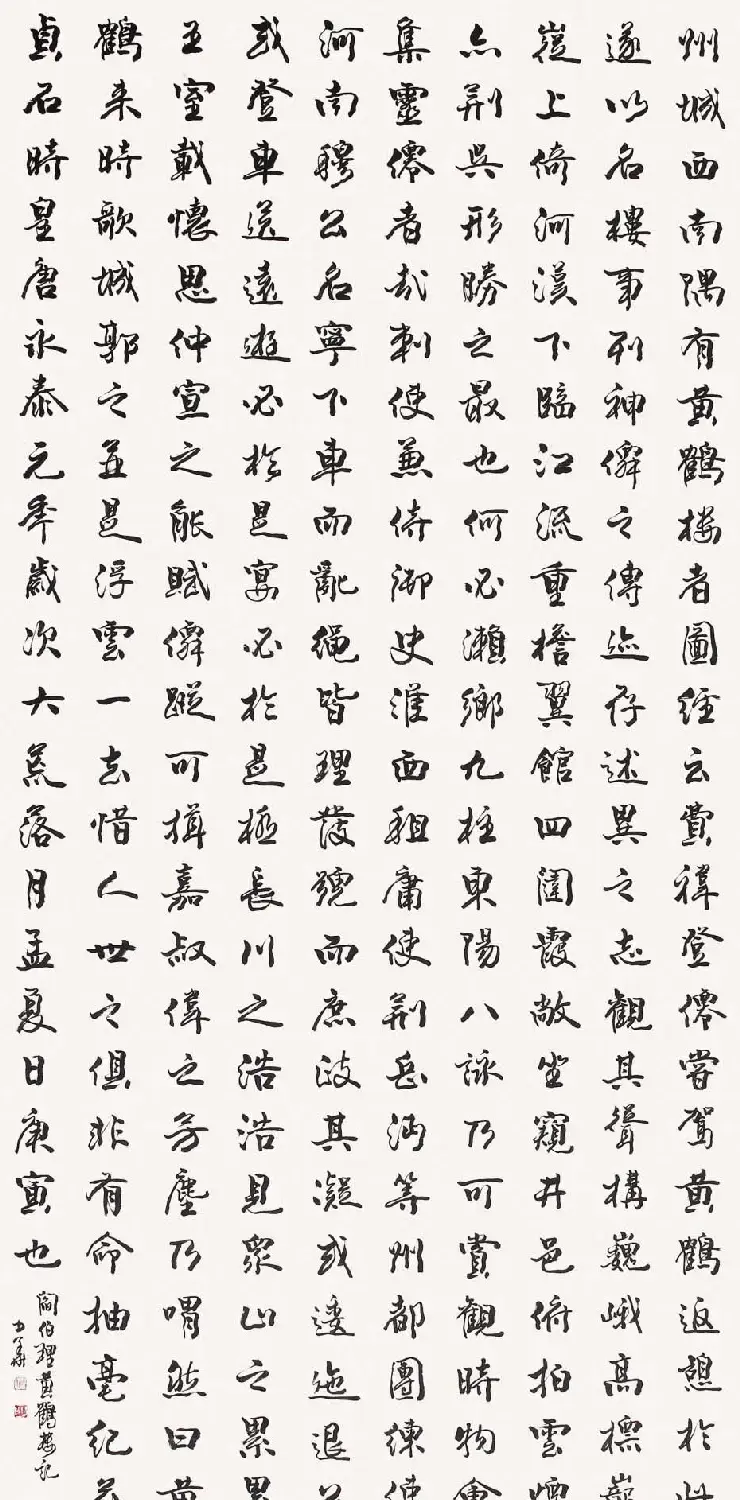 州城西南隅有黄鶴楼者圖經云費禕登僊嘗駕黄鶴返憩於此
遂以名樓事列神僊之傳迹存述異之志觀其聳構巍峨高標巃
嵸上倚河漢下臨江流重檐翼館四闥霞敞坐窺井邑俯拍雲煙
亦荆吳形勝之最也何必瀨鄉九柱東陽八詠乃可賞觀時物會
集靈僊者哉刺使兼侍御史淮西租庸使荆岳沔等州都團練使
河南穆公名寧下車而亂繩皆理發號而庶政其凝或逶迤退公
或登車送遠遊必於是宴必於是極長川之浩浩見衆山之累累
王室載懷思仲宣之能賦僊蹤可揖嘉叔偉之芳塵乃喟然曰黄
鶴来時歌城郭之並是浮雲一去惜人世之俱非有命抽毫紀兹
貞石時皇唐永泰元年歲次大荒落月孟夏日庚寅也
閻伯理黄鶴楼記